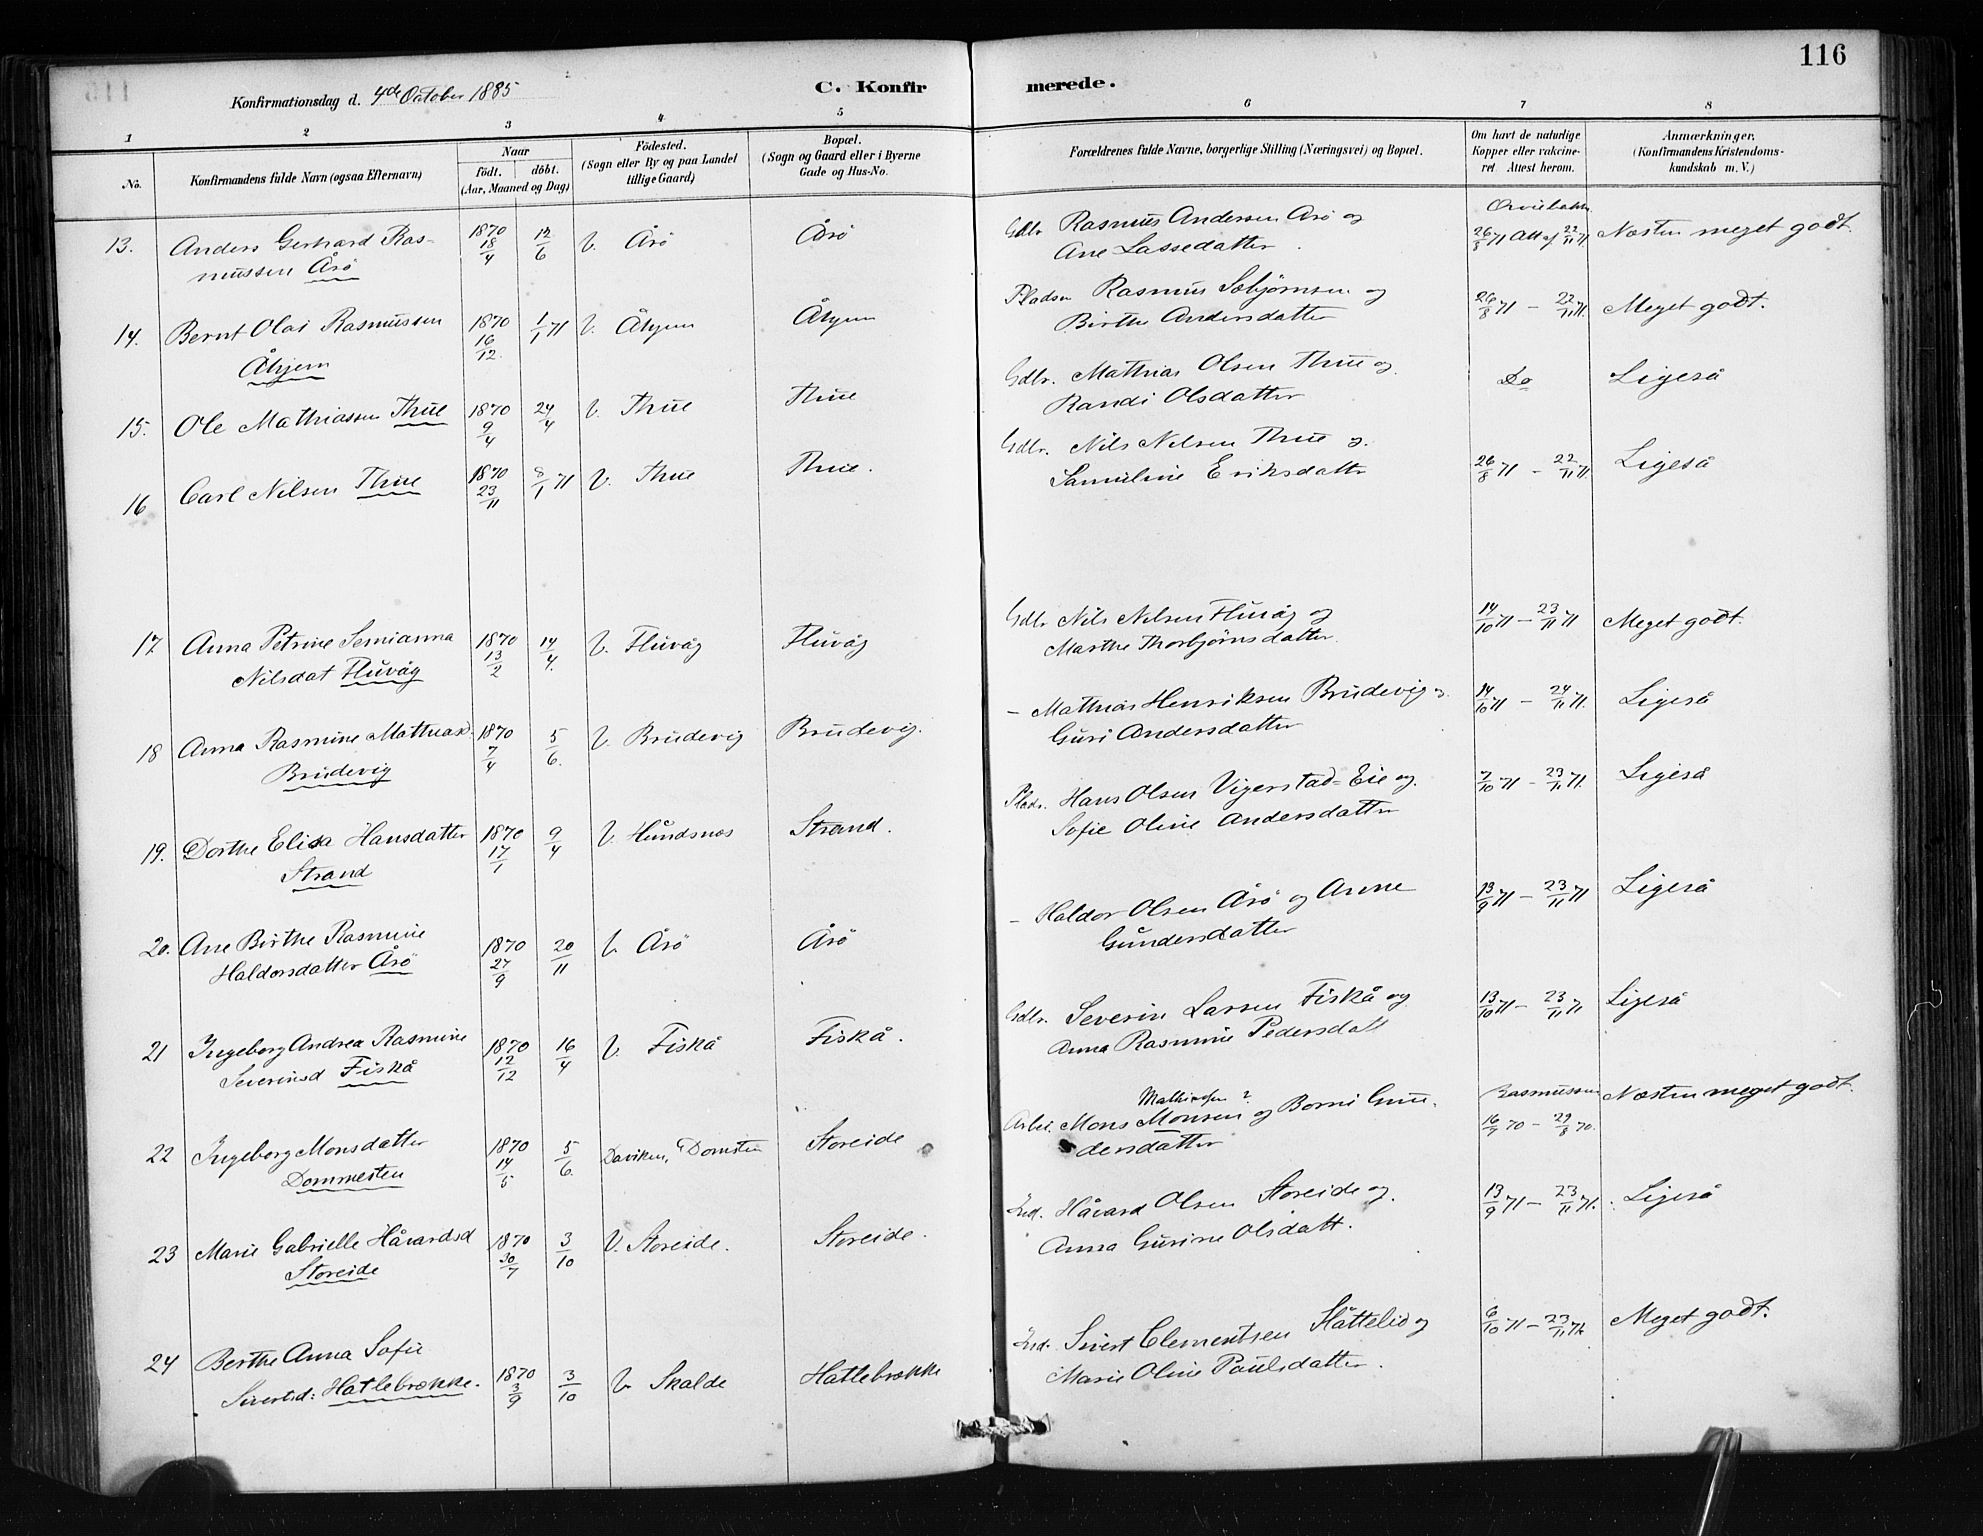 116
Konfirmationsdag d. 4de October 1885
C. Konfirmerede.
1 2 3 4 5 6 7 8
No.
Konfirmandens fulde Navn (ogsaa Efternavn)
Naar
födt. döbt.
(Aar, Maaned og Dag)
Födested.
(Sogn eller By og paa Landet
tillige Gaard)
Bopæl.
(Sogn og Gaard eller i Byerne
Gade og Hus-No.
Forældrenes fulde Navne, borgerlige Stilling (Næringsvei) og Bopæl.
Om havt de naturlige
Kopper eller vakcine-
ret Attest herom.
Anmærkninger.
(Konfirmandens Kristendoms-
kundskab m. V.)
13. Anders Gerhard Ras- 1870 18/4 12/6 V. Årö Årö Gdbr Rasmus Andersen Årö og 26/8 71 Att af 22/11 71 Næsten meget godt
mussen Årö Ane Lassedatter.
14. Bernt Olai Rasmussen 1870 16/12 1/1 71 V. Åhjem Åhjem Pladsm Rasmus Sebjørnsen og 26/8 71 – 22/11 71. Meget godt.
Åhjem Birthe Andersdatter
15. Ole Mathiassen Thue 1870 9/4 24/4 V. Thue Thue Gdbr. Mathias Olsen Thue og Do Ligeså
Randi Olsdatter
16 Carl Nilsen Thue 1870 23/11 8/1 71 V. Thue Thue. Gdbr. Nils Nilsen Thue o. 26/8 71 – 22/11 71. Ligeså
Samuline Eriksdatte
17 Anna Petrine Semianna 1870 13/2 14/4. V. Fluvåg Fluvåg Gdbr Nils Nilsen Fluvåg og 14/10 71 – 23/11 71 Meget godt.
Nilsdat Fluvåg Marthe Thorbjørnsdatter.
18 Anna Rasmine Mathiasd. 1870 7/4 5/6. V. Brudevig Brudevig. – Mathias Henriksen Brudevig o. 14/10 71 – 24/11 71. Ligeså
Brudevig Guri Andersdatter
19. Dorthe Elisa Hansdatter 1870 17/1 9/4 V. Hundsnes Strand. Pladr. Hans Olsen Vigerstad-Eie og. 7/10 71 – 23/11 71. Ligeså
Strand Sofie Oline Andersdatter
20. Ane Birthe Rasmine 1870 27/9 20/11 V. Årö Årö – Haldor Olsen Årö og Anne 13/9 71 – 23/11 71 Ligeså
Haldorsdatter Årö Gundersdatter
21 Ingeborg Andrea Rasmine 1870 12/12 16/4 V. Fiskå Fiskå. Gdbr. Severin Larsen Fiskå og 13/10 71 – 23/11 71 Ligeså
Severinsd Fiskå Anna Rasmine Pedersdatt
Mathiassen ? Rasmussen
22 Ingeborg Monsdatter 1870 14/5 5/6. Daviken, Domsten Storeide Arbei. Mons Monsen og Borni Gun- 16/7 70 – 29/8 70. Næsten meget godt.
Dommesten dersdatter
23 Marie Gabrielle Håvardsd 1870 30/7 3/10 V. Storeide. Storeide. Ind. Håvard Olsen Storeide og. 13/9 71 – 23/11 71. Ligeså
Storeide Anna Gurine Olsdatt.
24 Berthe Anna Sofie 1870 3/9 3/10 V. Skalde Hatlebrække Ind. Sivert Clementsen Slåttelid og 6/10 71 – 23/11 71. Meget godt.
Sivertsd: Hatlebrække. Marie Oline Paulsdatter.